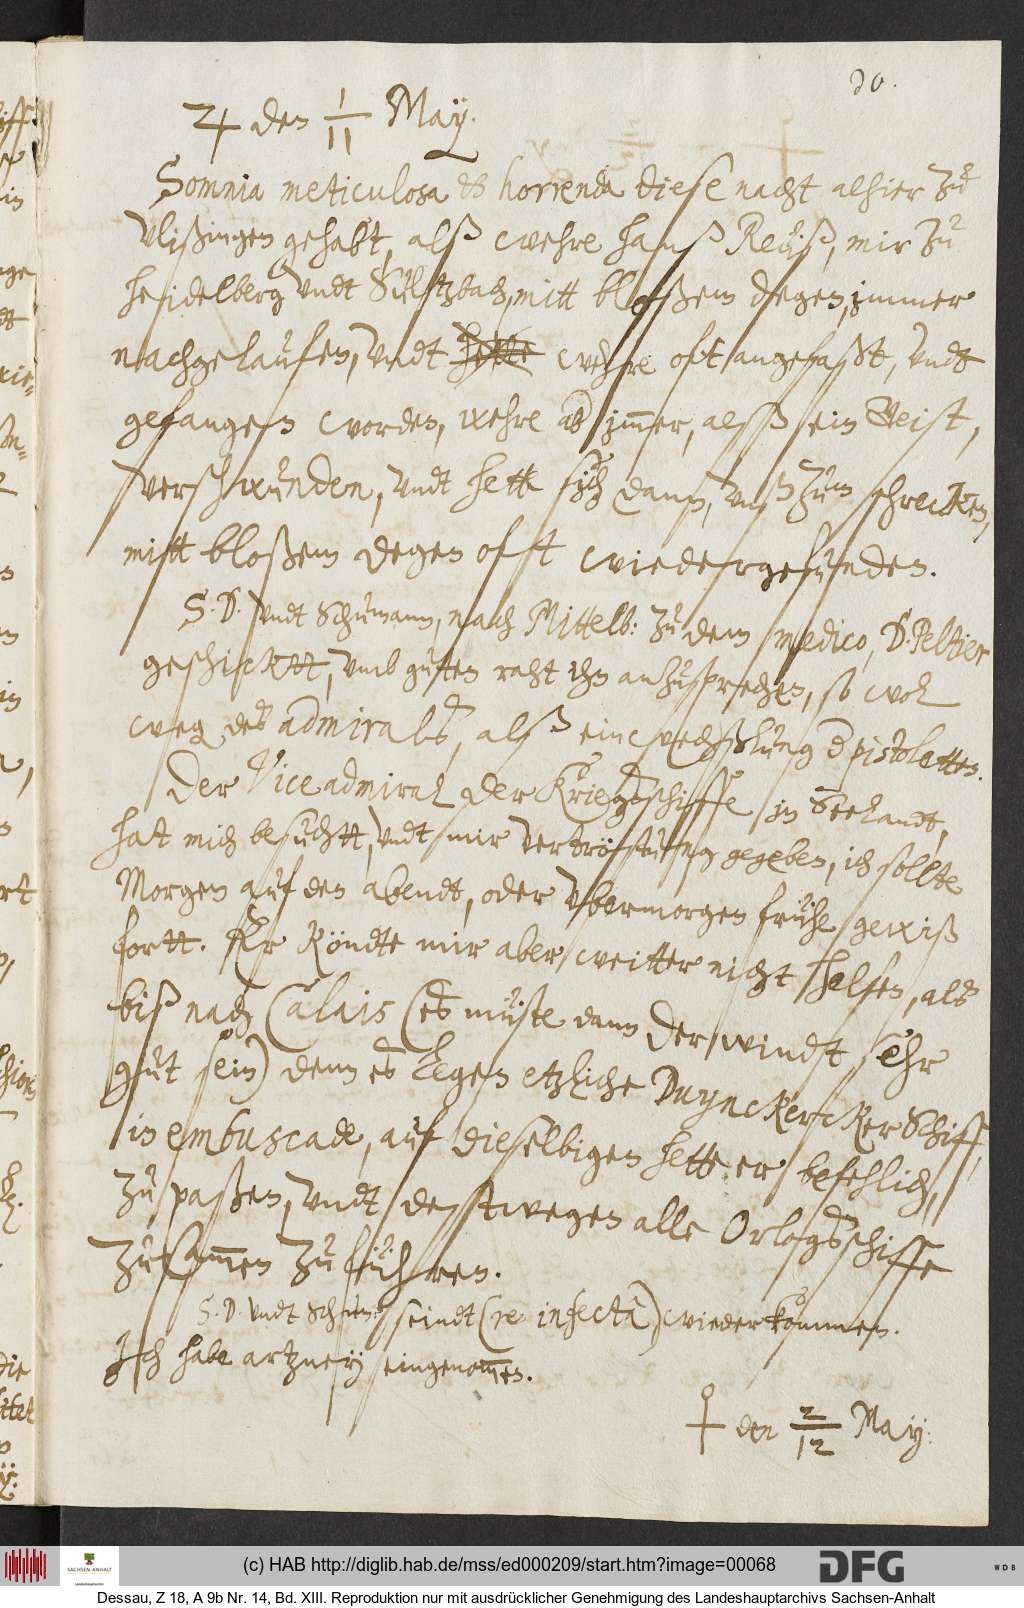 30.
♃ den 1/11 May.
Somnia meticulosa & horrenda diese nacht alhier zu
Vlißingen gehabt, alß wehre hanß Reuß, mir zu
heidelberg vndt Sultzbach, mitt bloßem degen, immer
nachgelaufen, vndt hette wehre oft angefaßt, vndt
gefangen worden, wehre ab im̅er, alß ein Geist,
verschwunden, vndt hette sich dann, vnß zum schrecken,
mitt bloßem degen oft wiedergefunden.
S. D. vndt Schumann, nach Mittelb: zu dem medico, D. Peltier
geschicktt, vmb guten raht ihn anzusprechen, so wol
weg des admirals, alß einwechßlung d pistoletten.
Der Vice admiral der Kriegsschiffe in Seelandt,
hat mich besuchtt, vndt mir vertröstung gegeben, ich sollte
Morgen auf den abendt, oder vbermorgen frühe gewiß
fortt. Er köndte mir aber weitter nicht helfen, als
biß nach Calais (es müste dann der windt sehr
gut sein) denn es legen etzliche Duynckercker Schiff,
in embuscade, auf dieselbigen hette er befehlich,
zu paßen, vndt desstwegen alle Orlogsschiffe
zusam̅en zu führen.
S. D. vndt Schum: seindt (re infectâ) wieder kommen.
Ich habe artzney eingenom̅en.
♀ den 2/12 May:
(c) HAB http://diglib.hab.de/mss/ed000209/start.htm?image=00068
SACHSEN-ANHALT
DFG
WDB
Dessau, Z 18, A 9b Nr. 14, Bd. XIII. Reproduktion nur mit ausdrücklicher Genehmigung des Landeshauptarchivs Sachsen-Anhalt